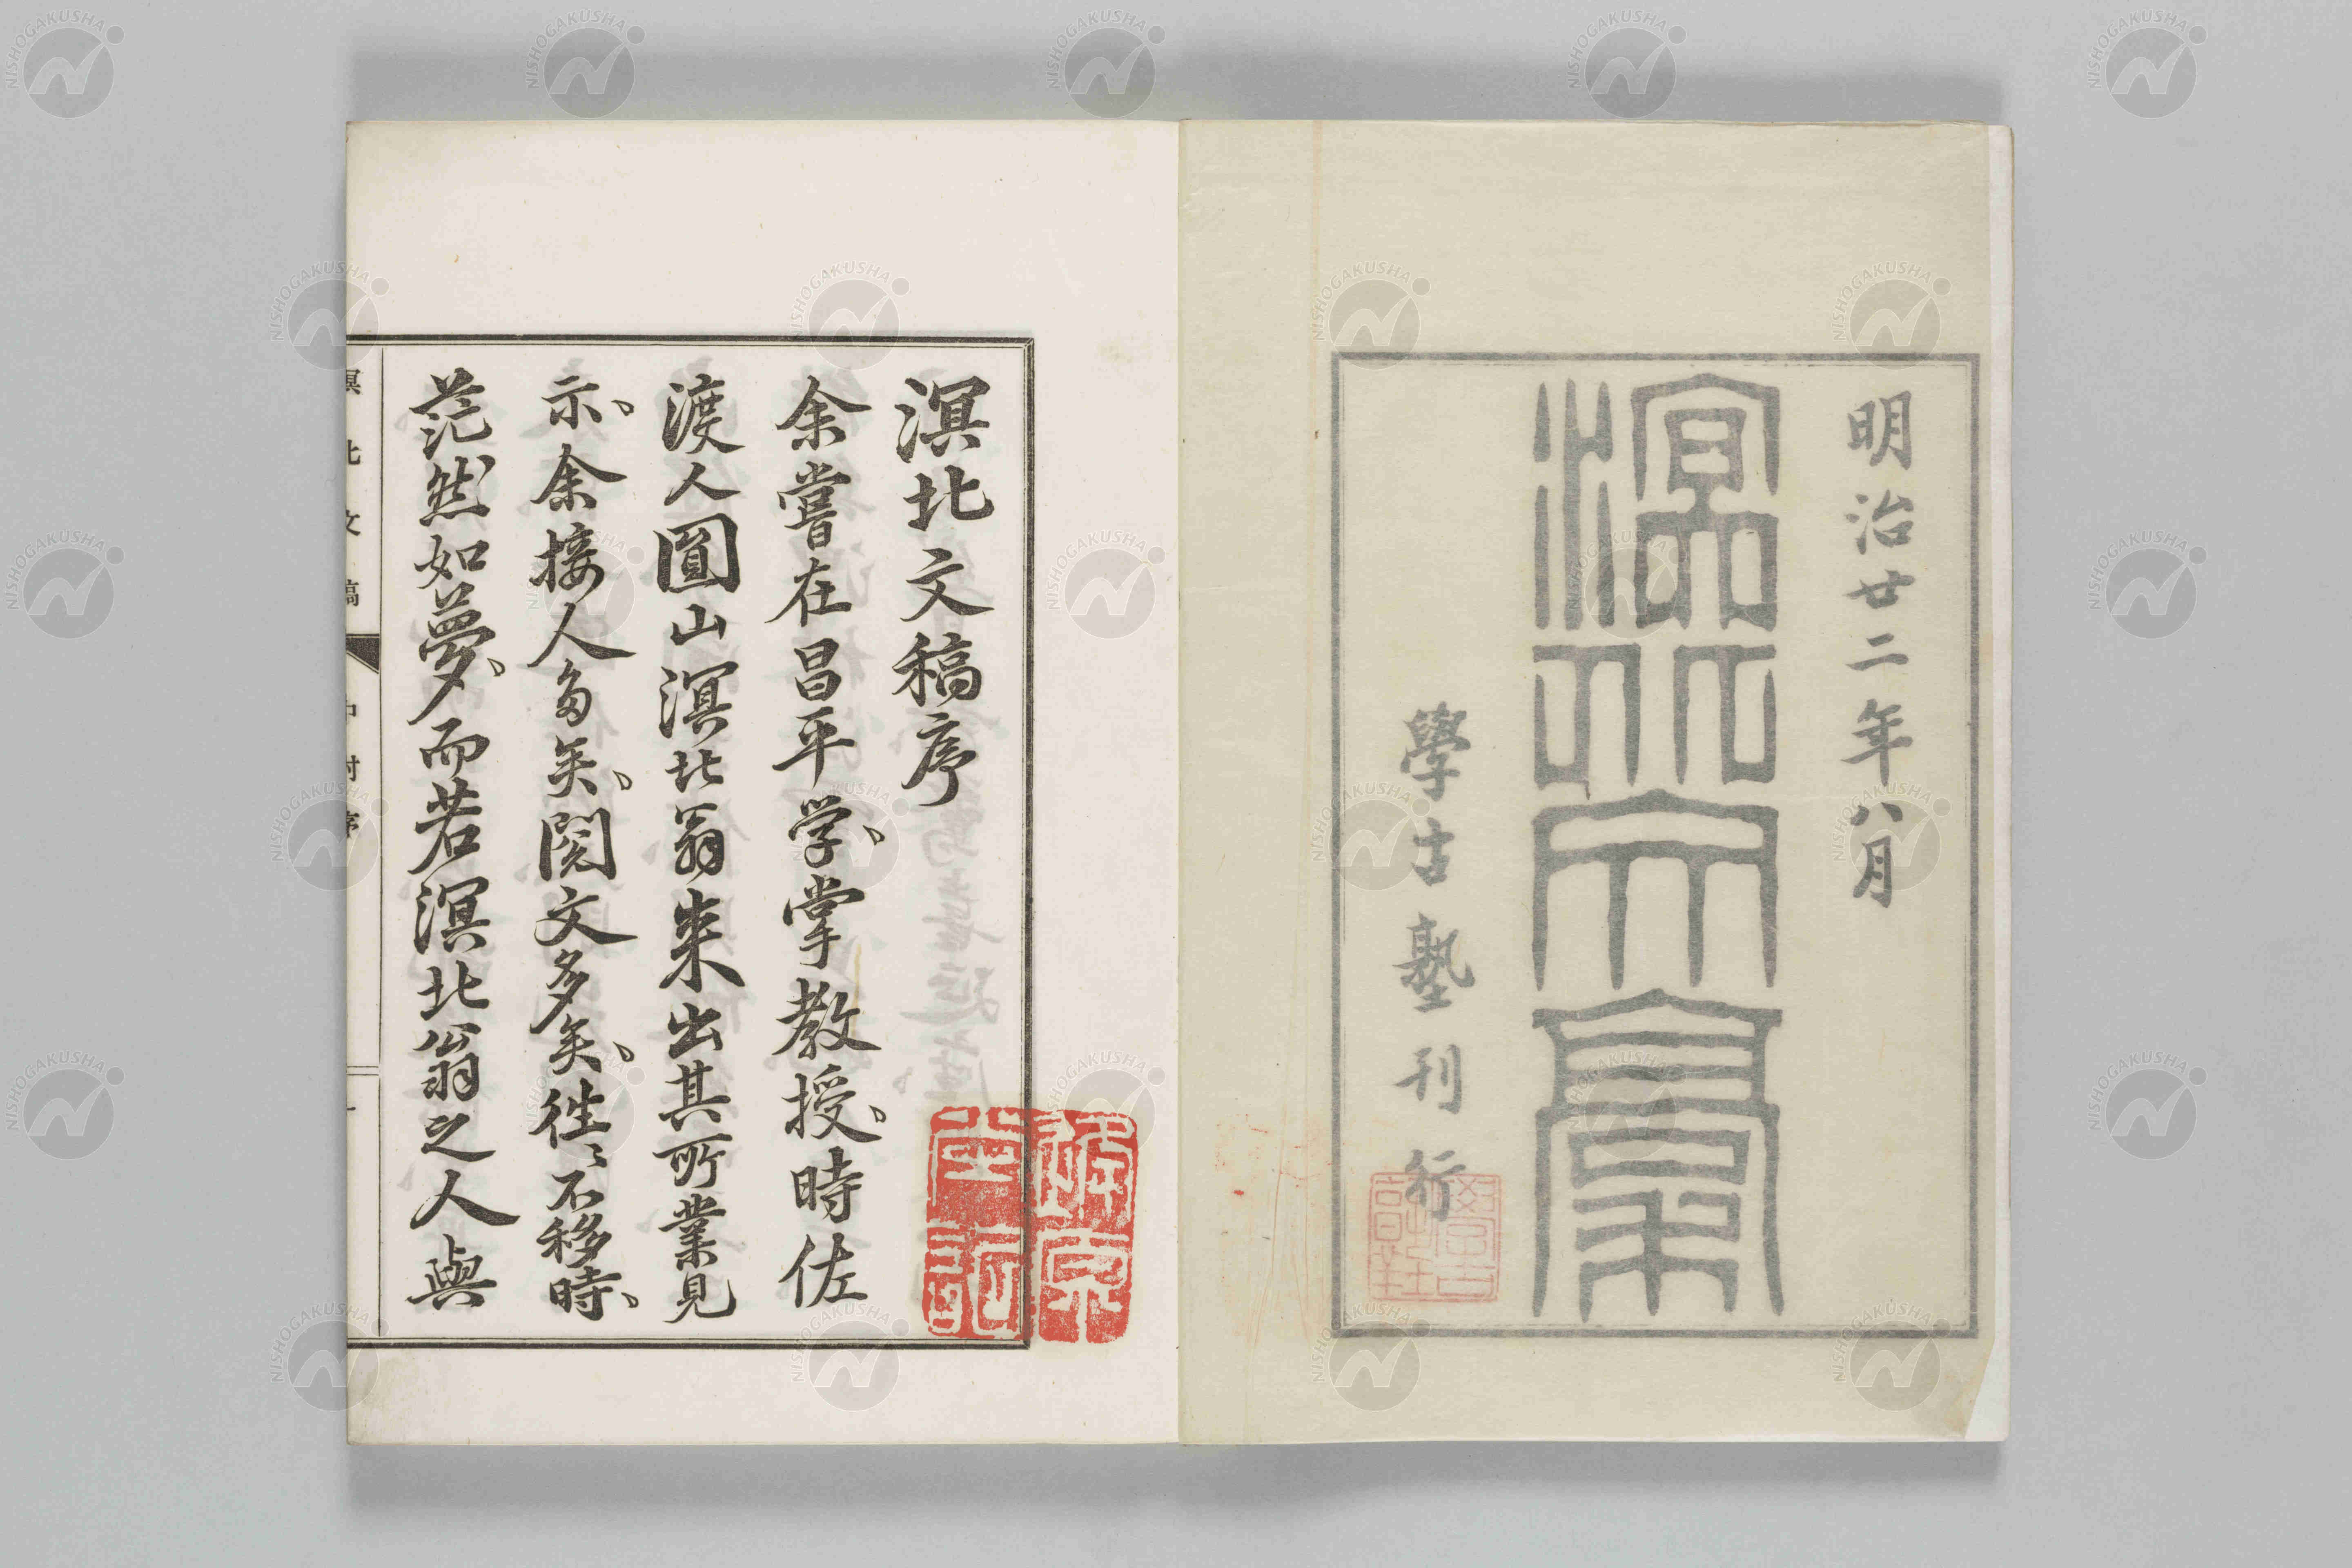 明治廿二年八月
溟北文稾
學古塾刊行
溟北文稿序
余嘗在昌平学、掌教授、時佐
渡人圓山溟北翁来出其所業見
示、余接人多矣、閲文多矣、徃〻不移時、
茫然如夢、而若溟北翁之人與
溟北文稿
中村序
一
NISHOGAKUSHA